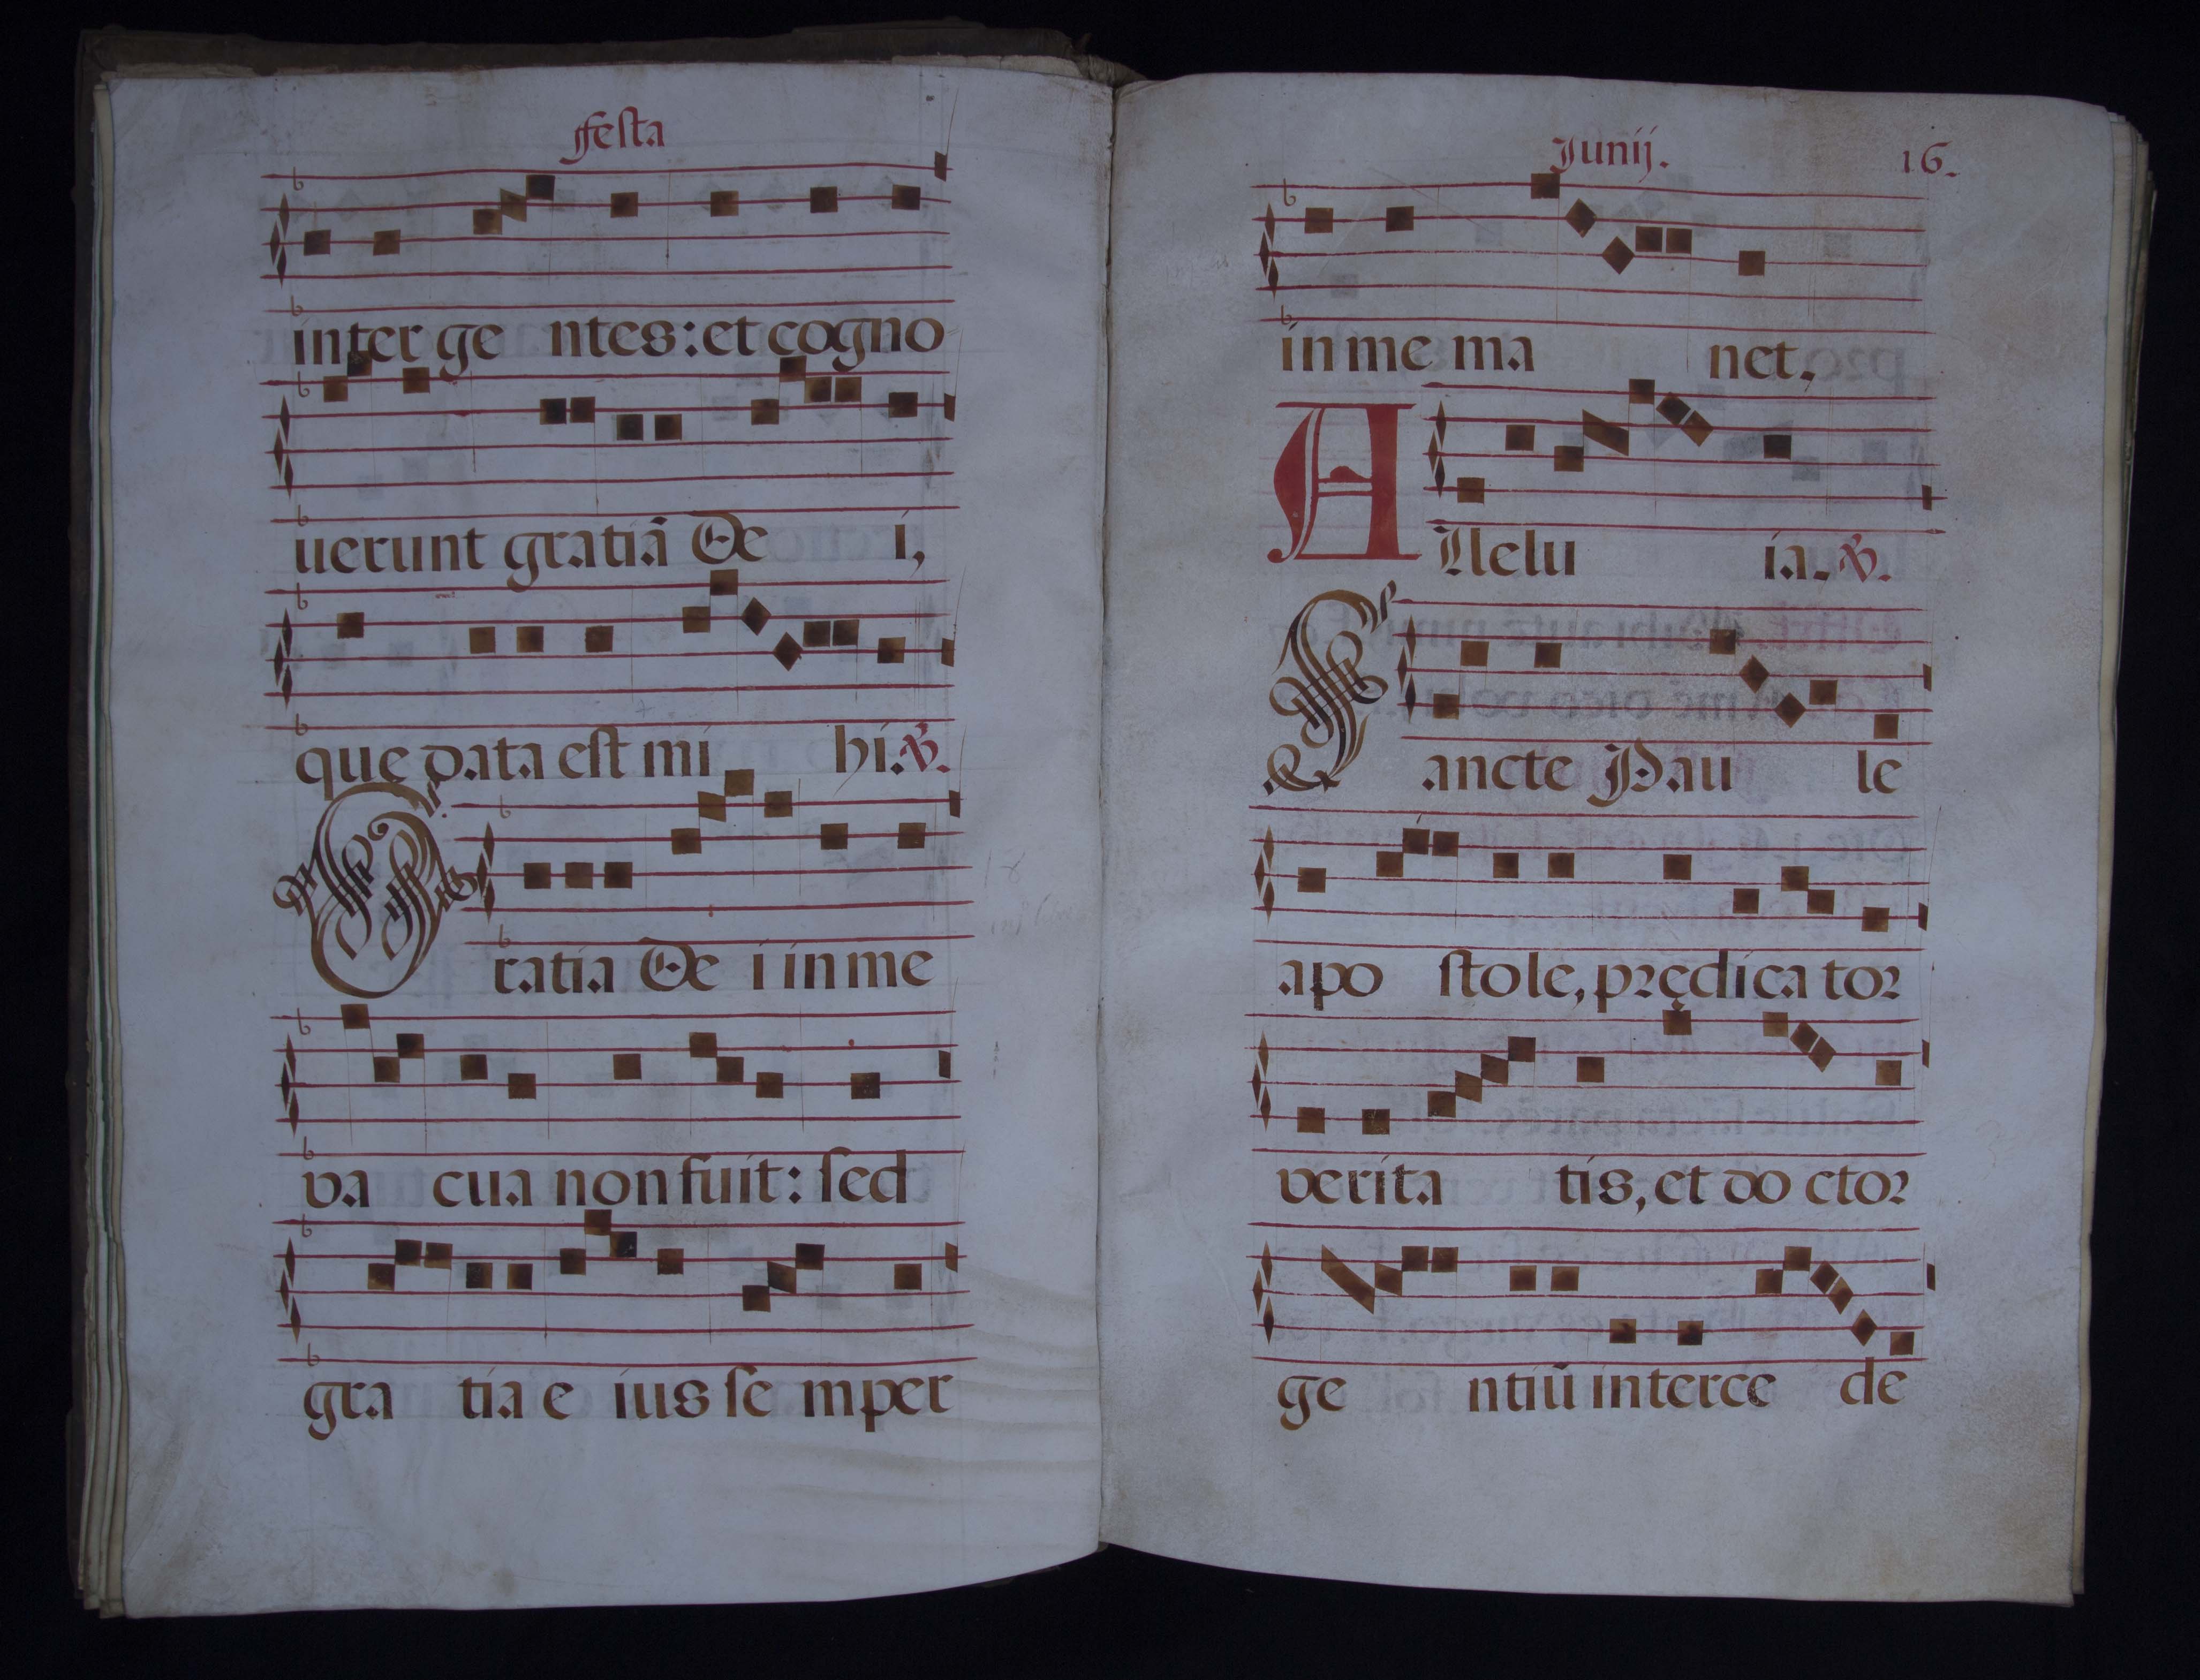 Festa
inter ge ntes: et cogno
uerunt gratiã De i,
que data est mi hi. ℣.
Gratia De i in me
va cua non fuit: sed
gra tia e ius se mper
Junij. 16.
in me ma net.
Allelu ia. ℣.
Sancte Pau le
apo stole, prędica tor
verita tis, et do ctor
ge ntiũ interce de